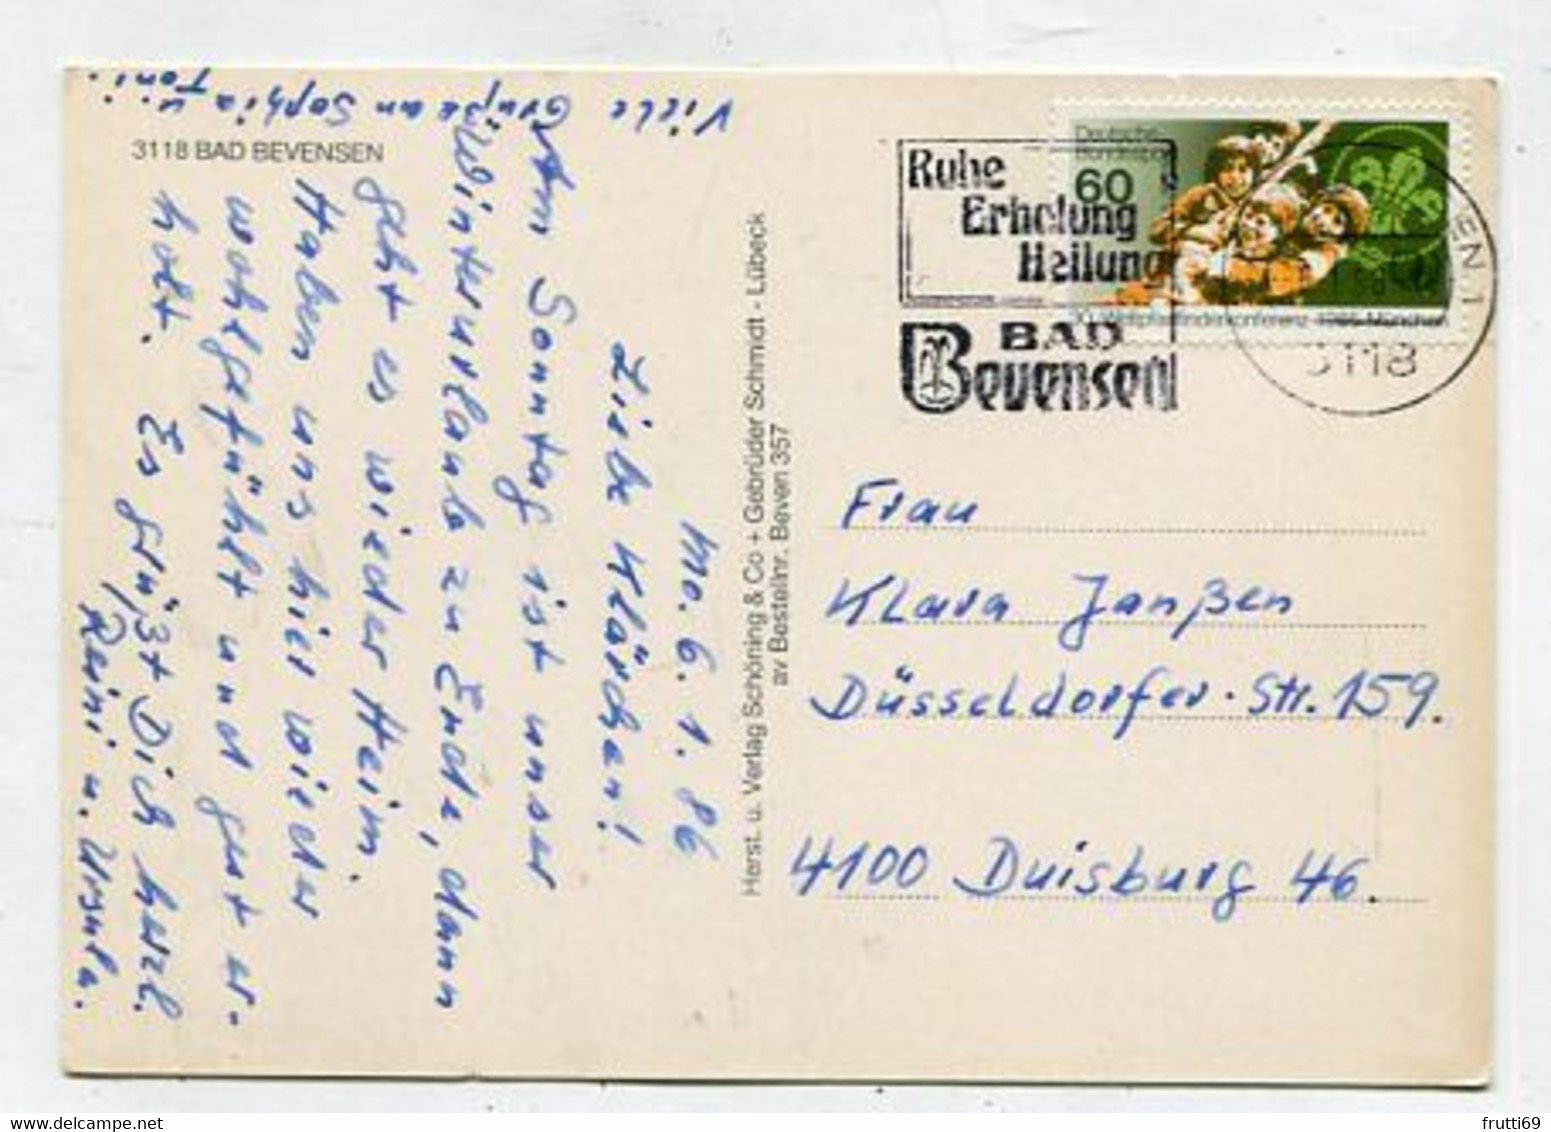 Viele
Grüße an Sophia u.
Toni.
3118 BAD BEVENSEN
Mo. 6. 1. 86
Liebe Klärchen!
Am Sonntag ist unser
Winterurlaub zu Ende, dann
geht es wieder Heim.
Haben uns hier wieder
wohlgefühlt und gut er-
holt. Es grüßt Dich herzl.
Reini u. Ursula.
Herst. u. Verlag Schöning & Co + Gebrüder Schmidt - Lübeck
av Bestellnr. Beven 357
Ruhe
Erholung
Heilung
BAD
Bevensen
Deutsche
Bundespost
60
30. Weltpfadfinderkonferenz 1985 München
EN 1
3118
Frau
Klara Janßen
Düsseldorfer-Str. 159.
4100 Duisburg 46.
frutti69